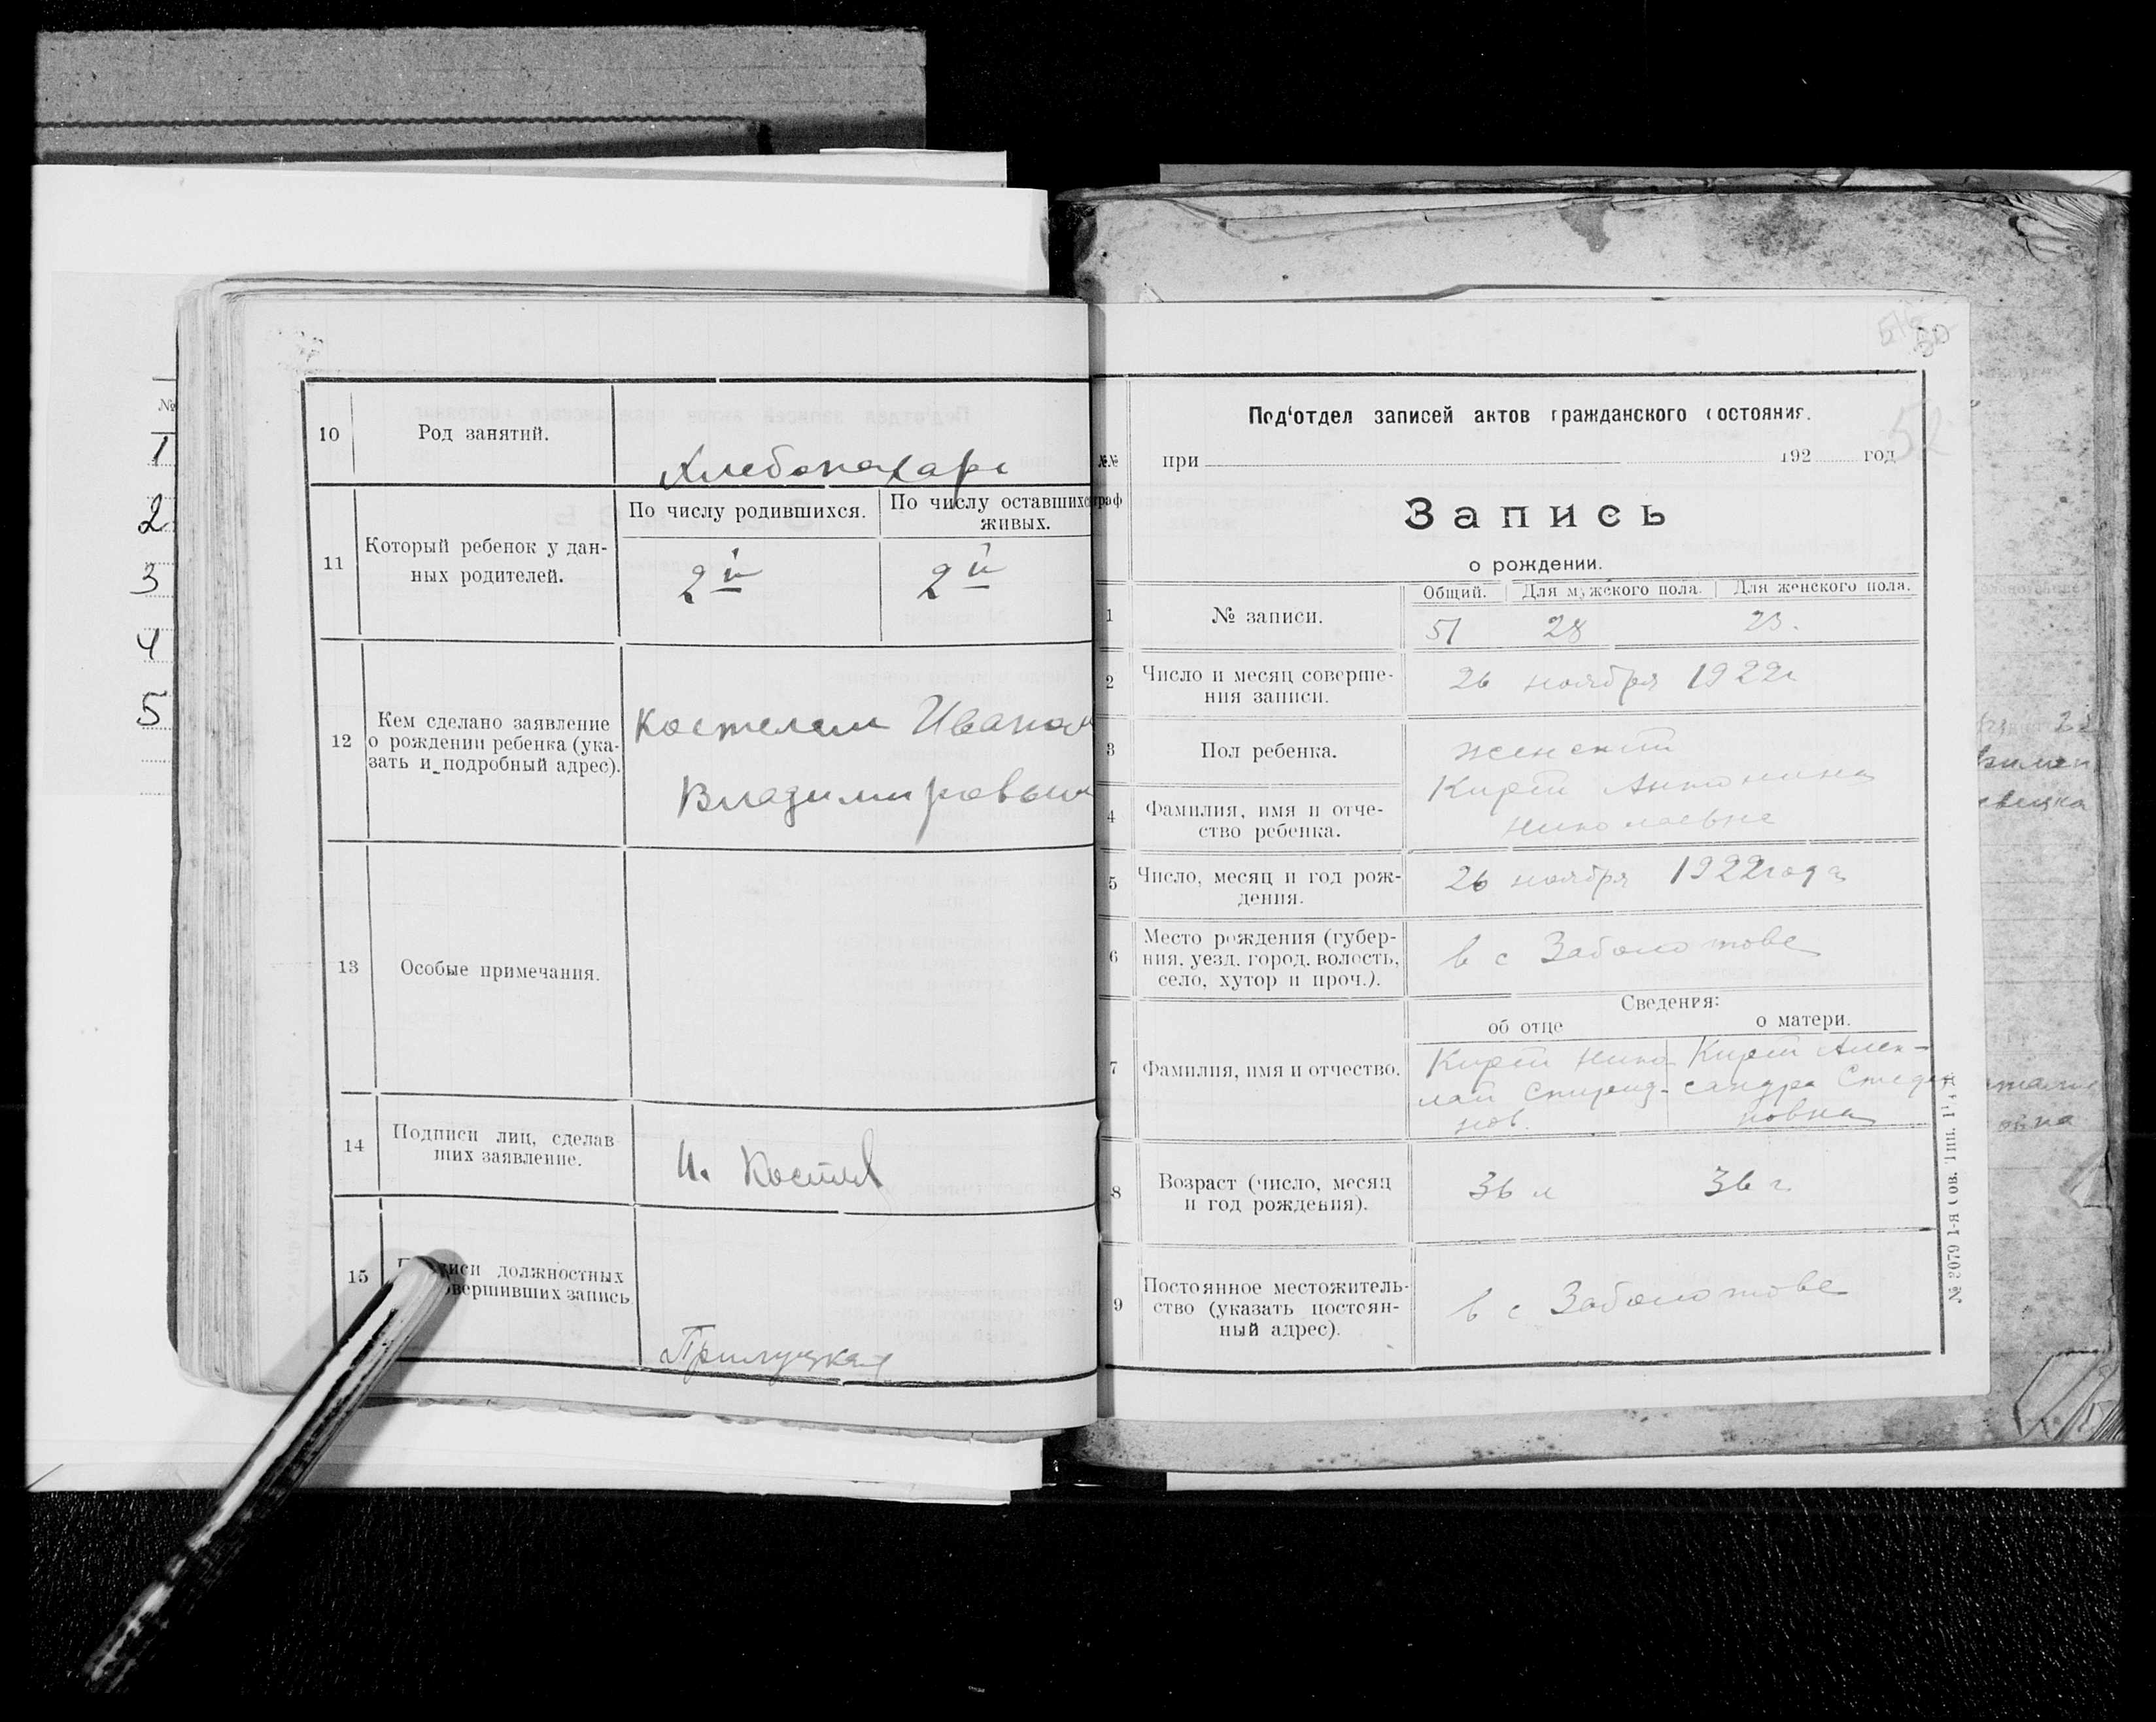 №
1
2
3
4
5
10 Род занятий. Хлебопахарь
11 Который ребенок у дан-
ных родителей.
По числу родившихся. По числу оставшихся
живых.
2й 2й
12 Кем сделано заявление
о рождении ребенка (ука-
зать и подробный адрес).
Костелем Иваном
Владимировым
13 Особые примечания.
14 Подписи лиц, сделав
ших заявление.
И.
15 должностных
запись
Прилуцкая
50
52
Под‘отдел записей актов гражданского состояния.
№№
граф
при 192 год
Запись
о рождении.
Общий. Для мужского пола. Для женского пола.
1 № записи. 51 28 23.
2 Число и месяц соверше-
ния записи.
26 ноября 1922г
3 Пол ребенка. женский
4 Фамилия, имя и отче-
ство ребенка.
Кирей Антонина
Николаевна
5 Число, месяц и год рож-
дения.
26 ноября 1922 года
6 Место рождения (губер-
ния, уезд, город, волость,
село, хутор и проч.).
в с Заболотове
Сведения:
об отце о матери.
7 Фамилия, имя и отчество.
Кирей Нико Кирей Алек-
лай Спирид- сандра
нов. новна
8 Возраст (число, месяц
и год рождения).
36 л 36 г.
9 Постоянное местожитель-
ство (указать постоян-
ный адрес).
в с Заболотове
№ 2079 1-я Сов. Тип.